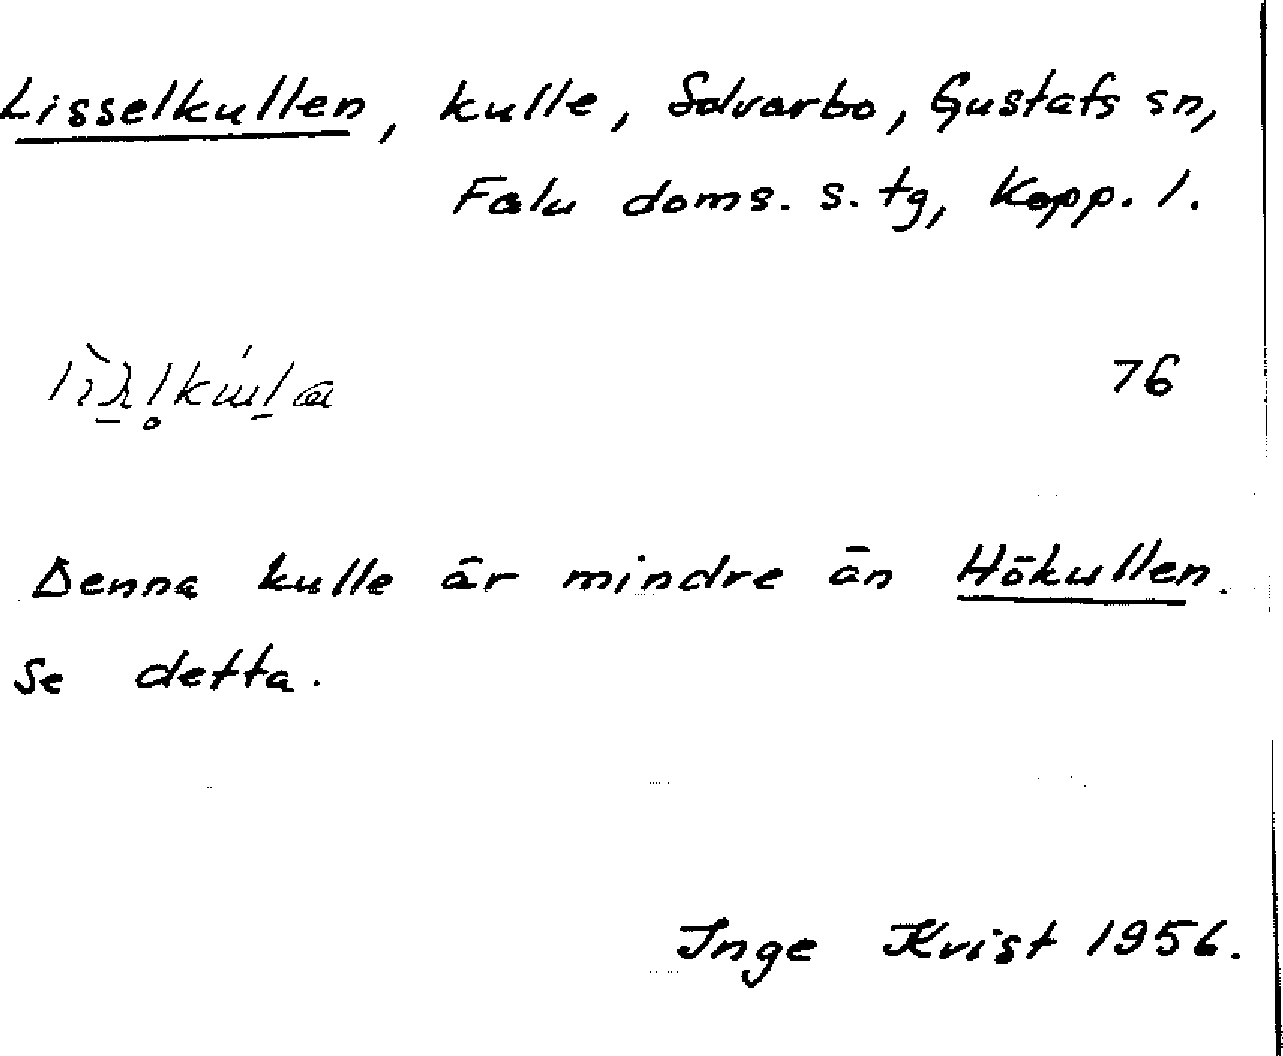 Lisselkullen, kulle, Solvarbo, Gustafs sn,
Falu doms. s. tg, Kopp. l.
76
Denna kulle är mindre än Hökullen.
Se detta.
Inge Kvist 1956.